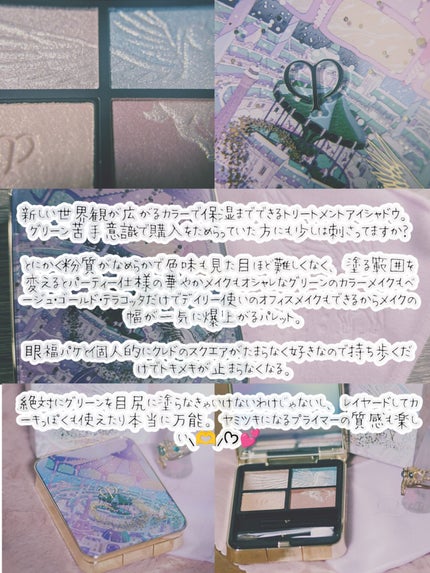 新しい世界観が広がるカラーで保湿までできるトリートメントアイシャドウ。
グリーン苦手意識で購入をためらっていた方にも少しは刺さってますか?
とにかく粉質がなめらかで色味も見た目ほど難しくなく、塗る範囲を
変えるとパーティー仕様の華やかメイクもオシャレなグリーンのカラーメイクもベ
ージュ・ゴールド・テラコッタだけでデイリー使いのオフィスメイクもできるからメイクの
幅が一気に爆上がるパレット。
眼福パケと個人的にクレドのスクエアがたまらなく好きなので持ち歩くだ
けでトキメキが止まらなくなる。
絶対にグリーンを目尻に塗らなきゃいけないわけじゃないし、レイヤードしてカ
ーキっぽくも使えたり本当に万能。ヤミツキになるプライマーの質感も楽し
い